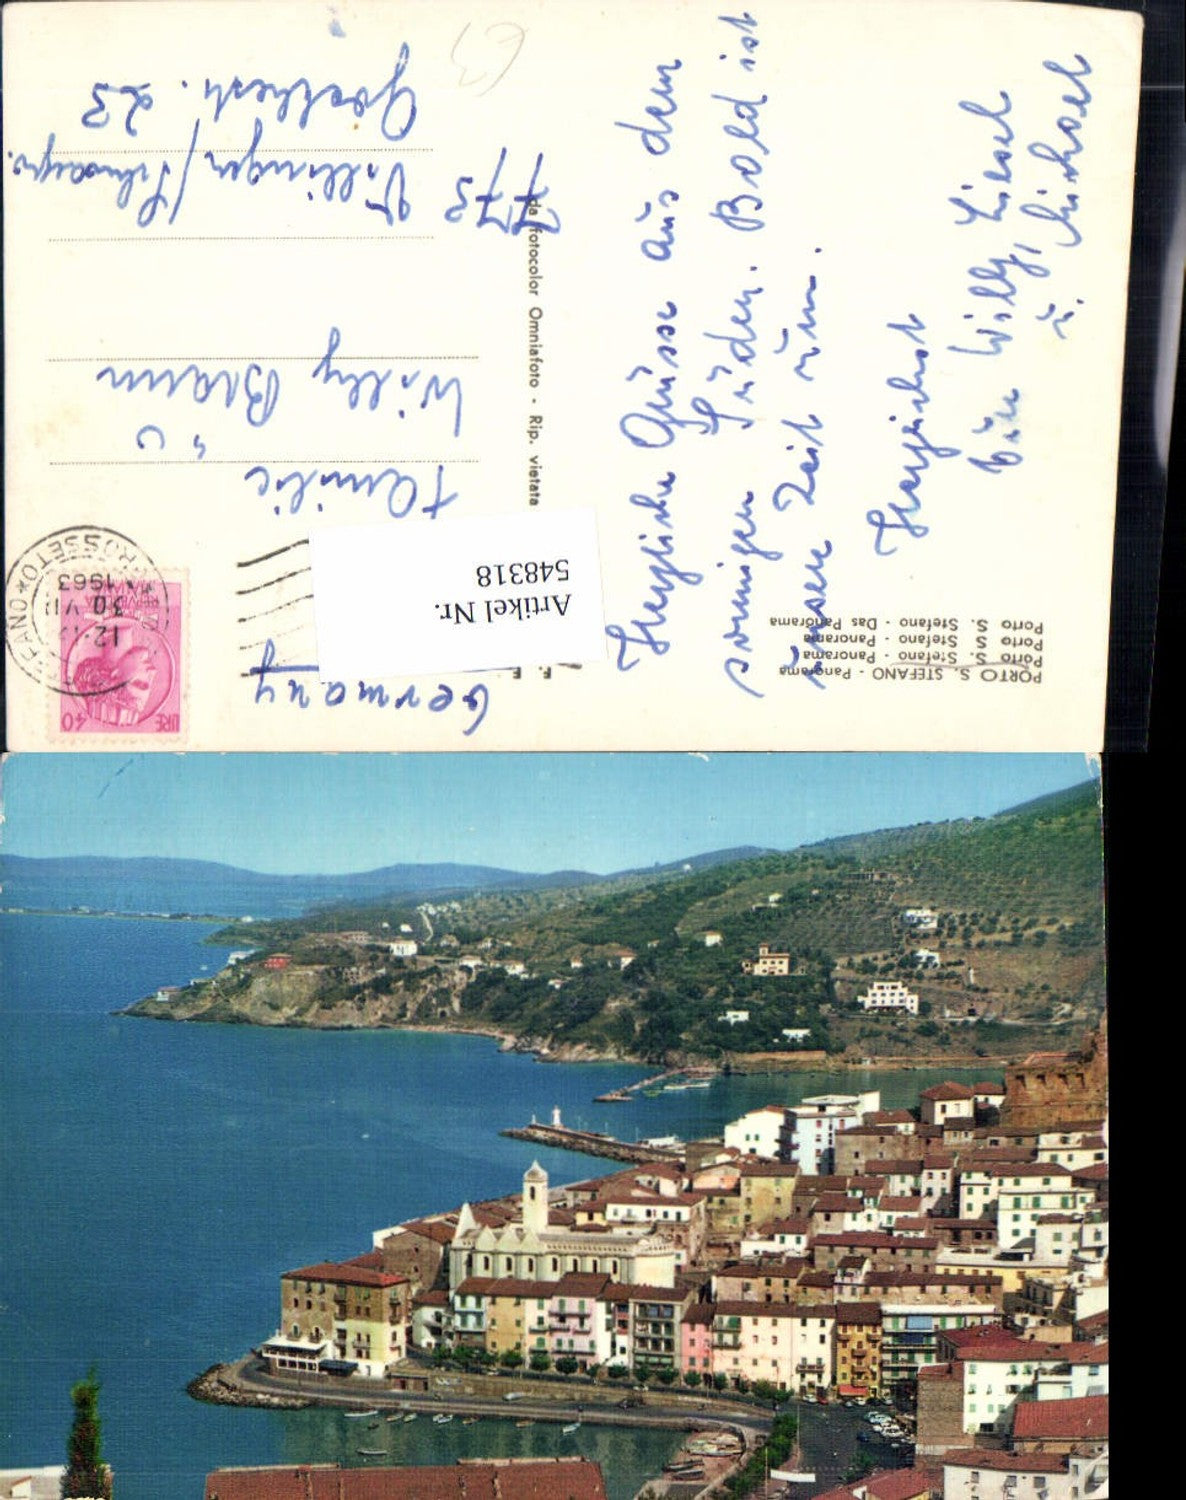 PORTO S. STEFANO - Panorama
Porto S. Stefano - Panorama
Porto S. Stefano - Panorama
Porto S. Stefano - Das Panorama
Herzliche Grüsse aus dem
sonnigen Süden. Bald ist
unsere Zeit um.
Herzlichst
Eure Willy, Liesel
u. Michael
da fotocolor Omniafoto - Rip. vietata
Artikel Nr.
548318
LIRE 40
12
30 VII
1963
GROSSETO
Germany
Familie
Willy Braun
773 Villingen/Schwarzw.
Goethestr. 23